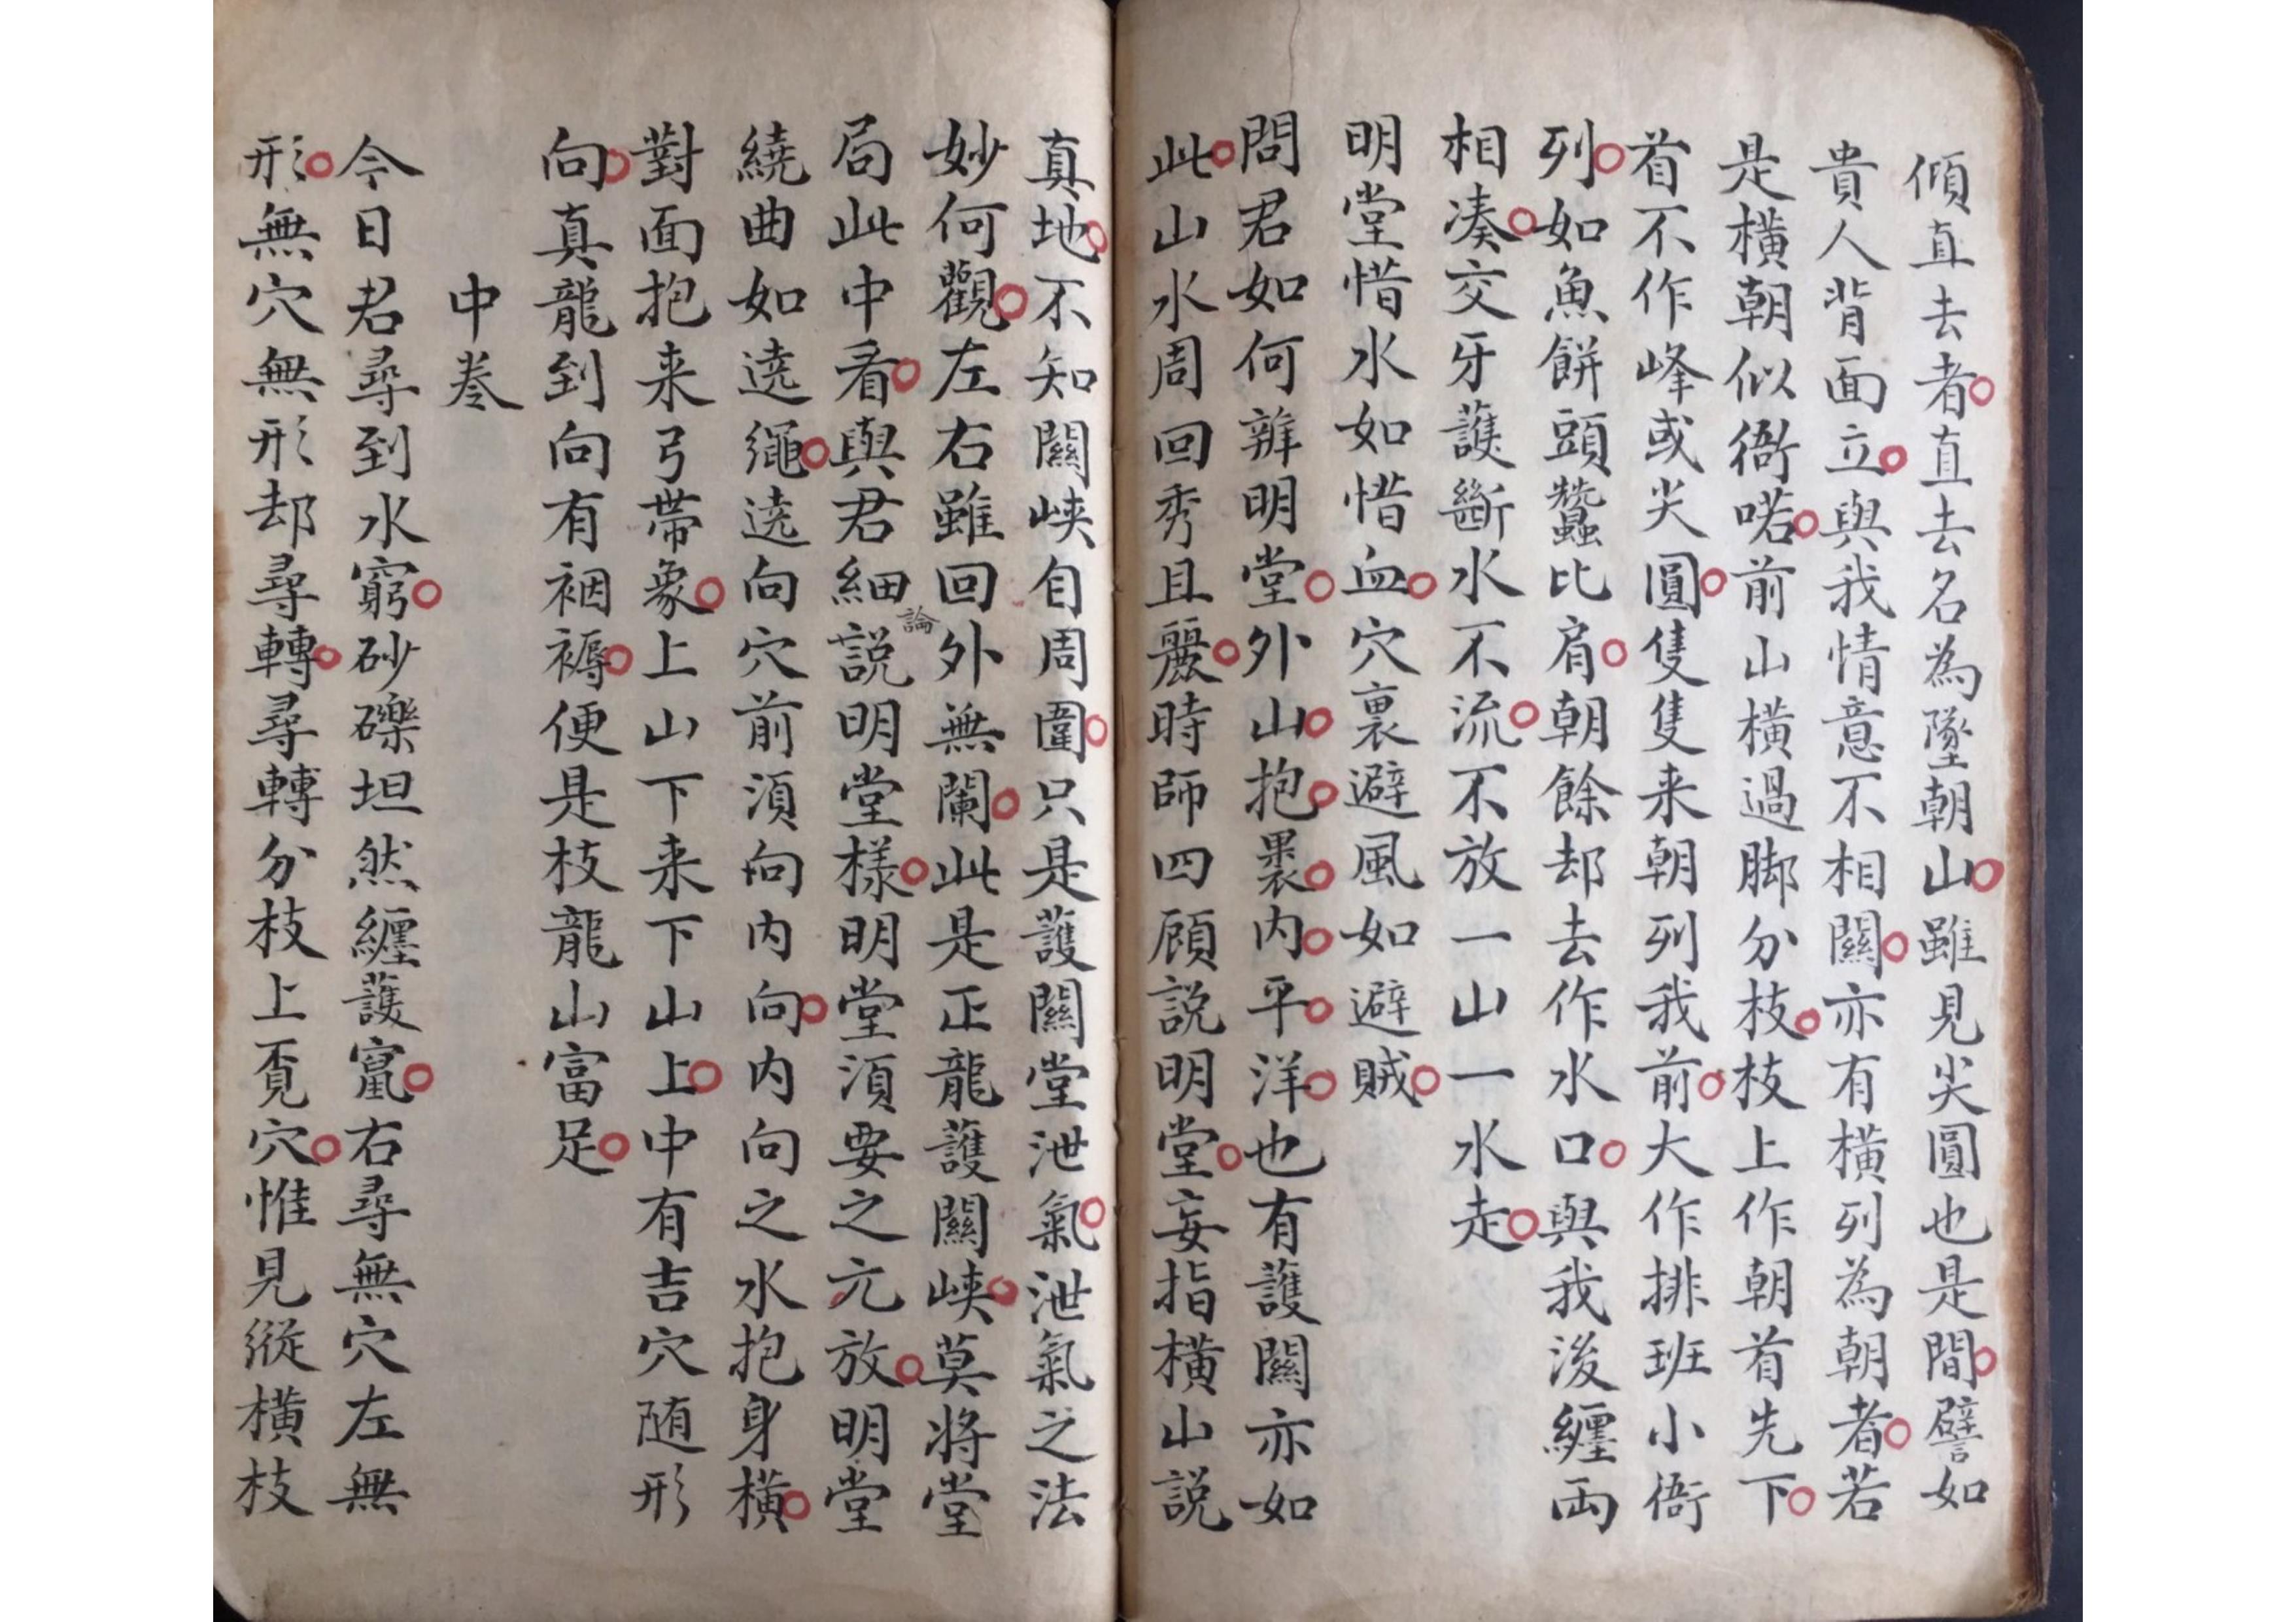 傾直去者直去名為墜朝山雖見尖圓也是間譬如
貴人背面立與我情意不相關亦有橫列為朝者若
是橫朝似衙喏前山橫過脚分枝枝上作朝首先下
首不作峰或尖圓隻隻来朝列我前大作排班小衙
列如魚餅頭蠶比肩朝餘却去作水口與我後纏両
相湊交牙護斷水不流不放一山一水走
明堂惜水如惜血穴裏避風如避賊
問君如何辨明堂外山抱裹内平洋也有護關亦如
此山水周回秀且麗時師四顧説明堂妄指橫山説
真地不知關峡自周圍只是護關堂泄氣泄氣之法
妙何觀左右雖回外無闌此是正龍護關峡莫将堂
局此中看與君細説明堂樣明堂湏要之元放明堂
論
繞曲如遶繩遶向穴前湏向内向内向之水抱身橫
對面抱来弓帶象上山下来下山上中有吉穴随形
向真龍到向有裀褥便是枝龍山富足
中卷
今日君尋到水窮砂礫坦然纏護窩右尋無穴左無
形無穴無形却尋轉尋轉分枝上覓穴惟見縱橫枝